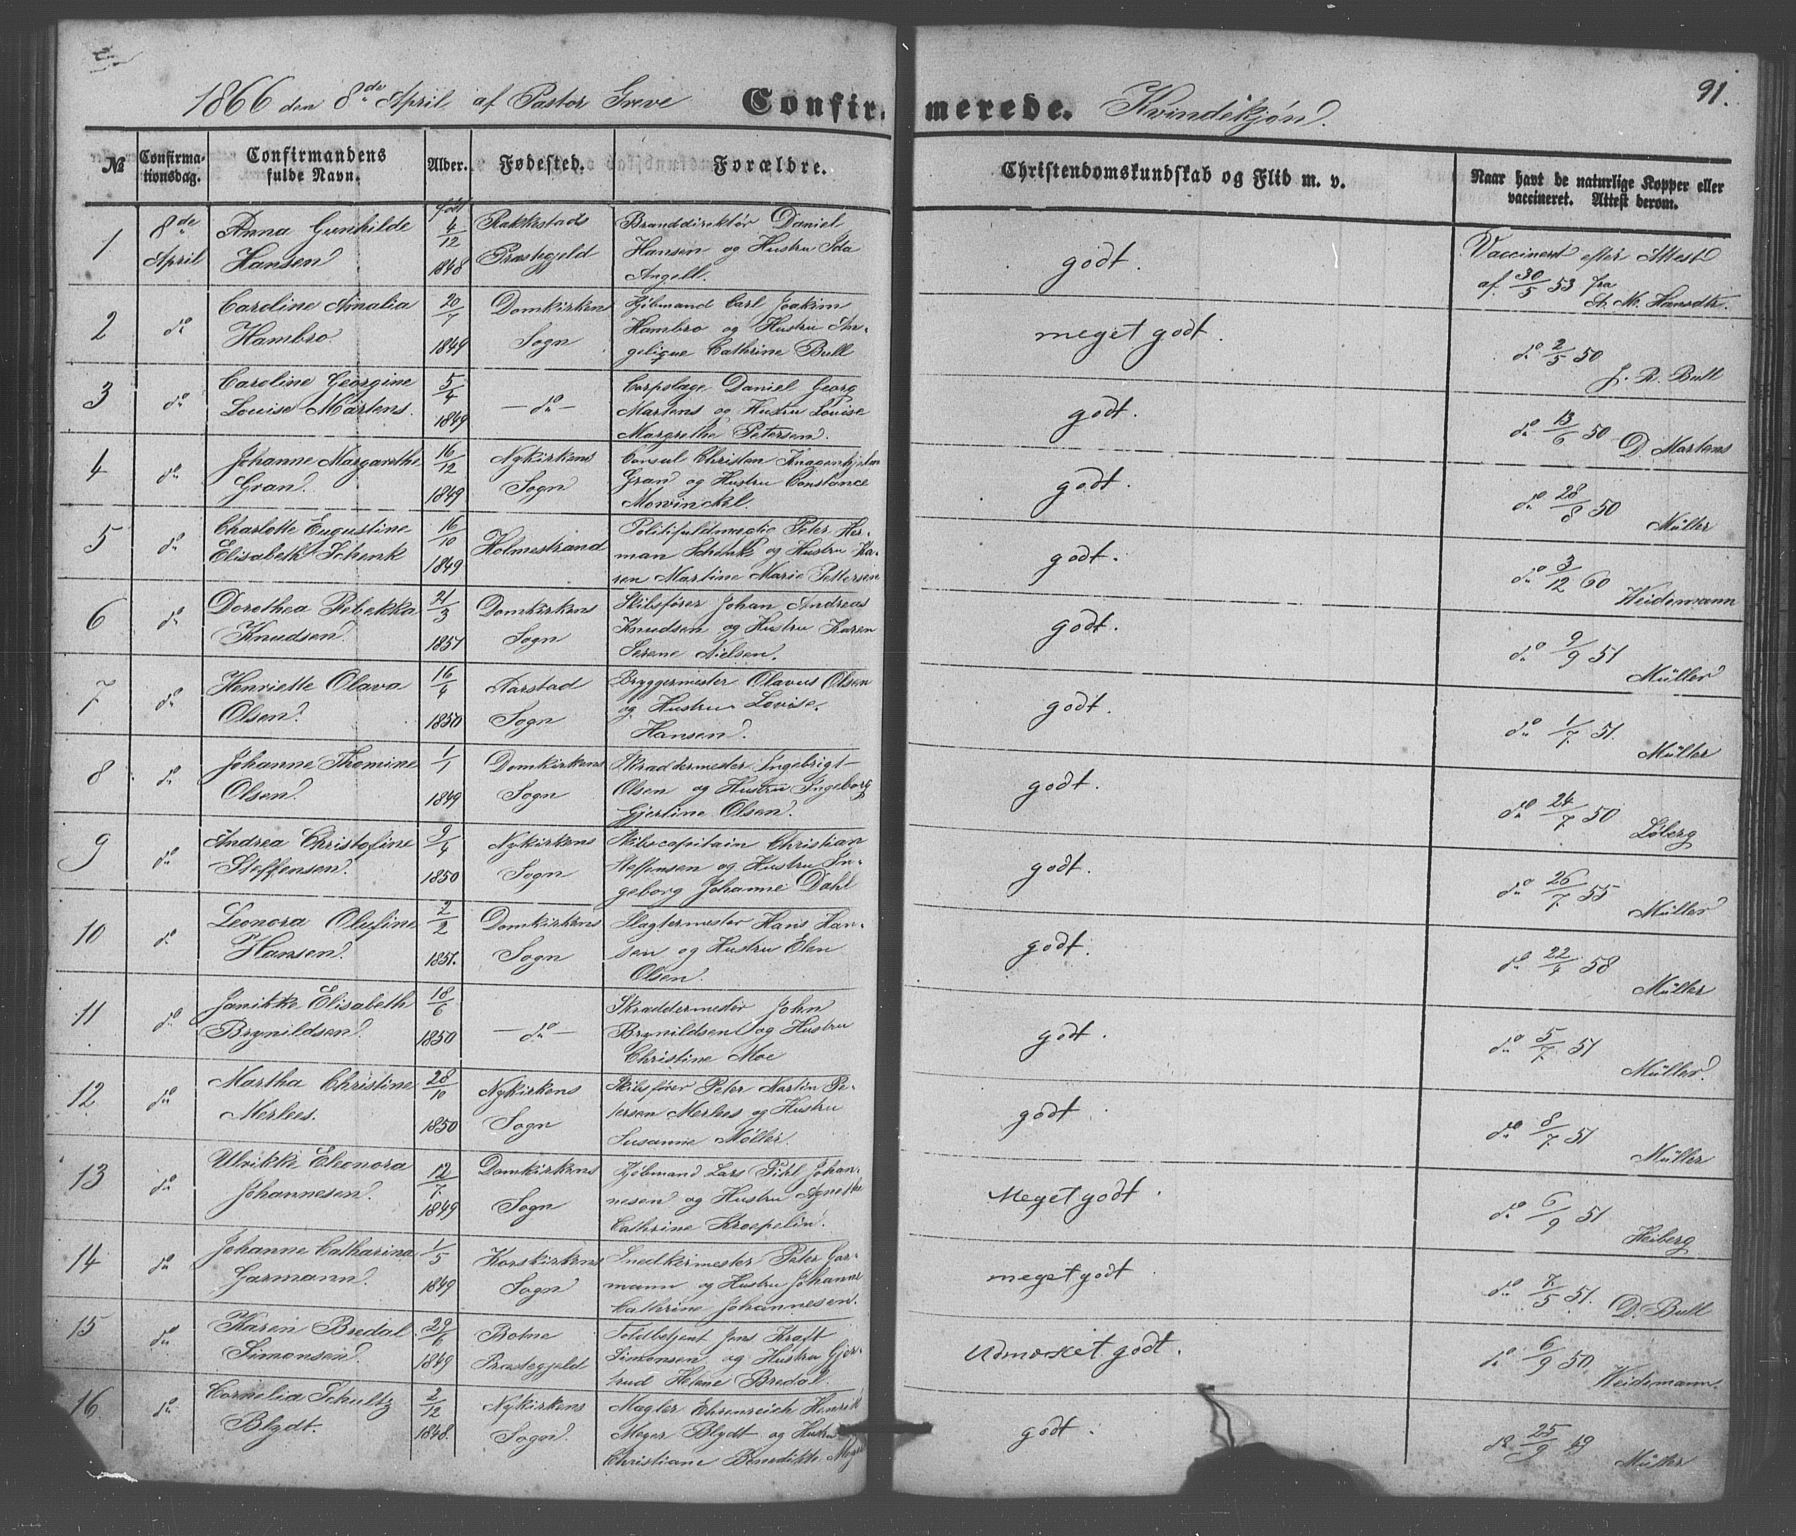 1866 den 8de April af Pastor Greve Confirmerede. Kvindekjøn. 91.
№ Confirmationsdag. Confirmandens fulde Navn. Alder. Fødested. Forældre. Christendomskundskab og Flid m. v. Naar havt de naturlige Kopper eller vaccineret. Attest derom.
1 8de April Anna Gunhilde Hansen født 4/12 1848 Rakkestads Præstegjeld Branddirektør Daniel Hansen og Hustru Ida Angell. godt. Vaccineret efter Attest af 30/5 53 fra
2 do Caroline Amalia Hambro 20/7 1849 Domkirkens Sogn Kjøbmand Carl Joakim Hambro og Hustru Angelique Cathrine Bull meget godt. do 2/5 50 J. R. Bull
3 do Caroline Georgine Louise Martens. 5/4 1849 do Corpslæge Daniel Georg Martens og Hustru Louise Margrethe Petersen. godt. do 13/6 50 D. Martens
4 do Johanne Margarethe Gran. 16/12 1849 Nykirkens Sogn Consul Christen Knagenhjelm Gran og Hustru Constance Mowinckel. godt. do 28/8 50 Müller
5 do Charlotte Eugustine Elisabeth Schenk 16/10 1849 Holmestrand Politifuldmægtig Peter Herman Schenk og Hustru Karen Martine Marie Pettersen godt. do 3/12 60 Weidemann
6 do Dorothea Rebekka Knudsen. 21/3 1851 Domkirkens Sogn Skibsfører Johan Andreas Knudsen og Hustru Karen Serene Nielsen. godt. do 9/9 51 Müller
7 do Henriette Olava Olsen. 16/4 1850 Aarstad Sogn Bryggermester Olavus Olsen og Hustru Lovise Hansen. godt. do 1/7 51. Müller
8 do Johanne Thomine Olsen. 1/1 1849 Domkirkens Sogn Skræddermester Ingebrigt Olsen og Hustru Ingeborg Gjertine Olsen. godt. do 24/7 50 Løberg
9 do Andrea Christofine Steffensen. 9/4 1850 Nykirkens Sogn Skibscapitain Christian Steffensen og Hustru Ingeborg Johanne Dahl godt. do 26/7 55 Müller
10 do Leonora Olufine Hansen. 2/2 1851. Domkirkens Sogn Slagtermester Hans Hansen og Hustru Elen Olsen. godt. do 22/4 58 Müller
11 do Janikke Elisabeth Brynildsen. 18/6 1850 do Skræddermester John Brynildsen og Hustru Christine Moe godt. do 5/7 51 Müller.
12 do Martha Christine Merkes. 28/10 1850 Nykirkens Sogn Skibsfører Peter Martin Petersen Merkes og Hustru Susanne Møller. godt. do 8/7 51 Müller
13 do Ulrikke Eleonora Johannesen. 12/7 1849 Domkirkens Sogn Kjøbmand Lars Pihl Johannesen og Hustru Agnethe Cathrine Kroepelin. Meget godt. do 6/9 51 Heiberg
14 do Johanne Catharina Garmann. 1/5 1849 Korskirkens Sogn Snedkermester Peter Garmann og Hustru Johanne Cathrine Johannesen. meget godt. do 7/5 51. D. Bull
15 do Karen Bredal Simonsen. 29/6 1849 Botne Præstegjeld Toldbetjent Jens Kraft Simonsen og Hustru Gjertrud Helene Bredal. Udmærket godt. do 6/9 50 Weidemann.
16 do Cornelia Schultz Blydt. 2/12 1848. Nykirkens Sogn. Mægler Ehrenreich Henrik Meyer Blydt og Hustru Christiane Benedikte Meyer godt. do 25/9 49 Müller